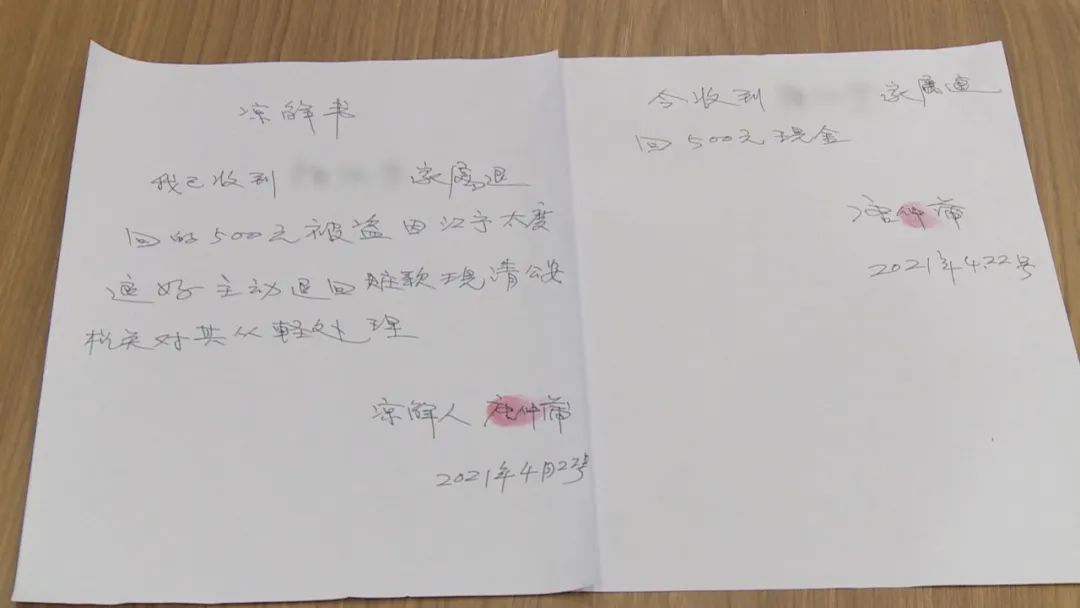 凉解书
我已收到 家属退
回的500元被盗由江于太度
良好主动退回赃款现请公安
机关对其从轻处理
凉解人 唐仲蒲
2021年4月22号
今收到 家属退
回500元现金
唐仲蒲
2021年4.22号